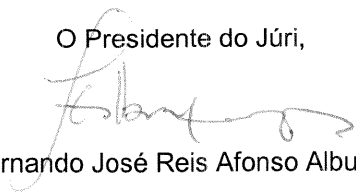 O Presidente do Júri,
rnando José Reis Afonso Albu